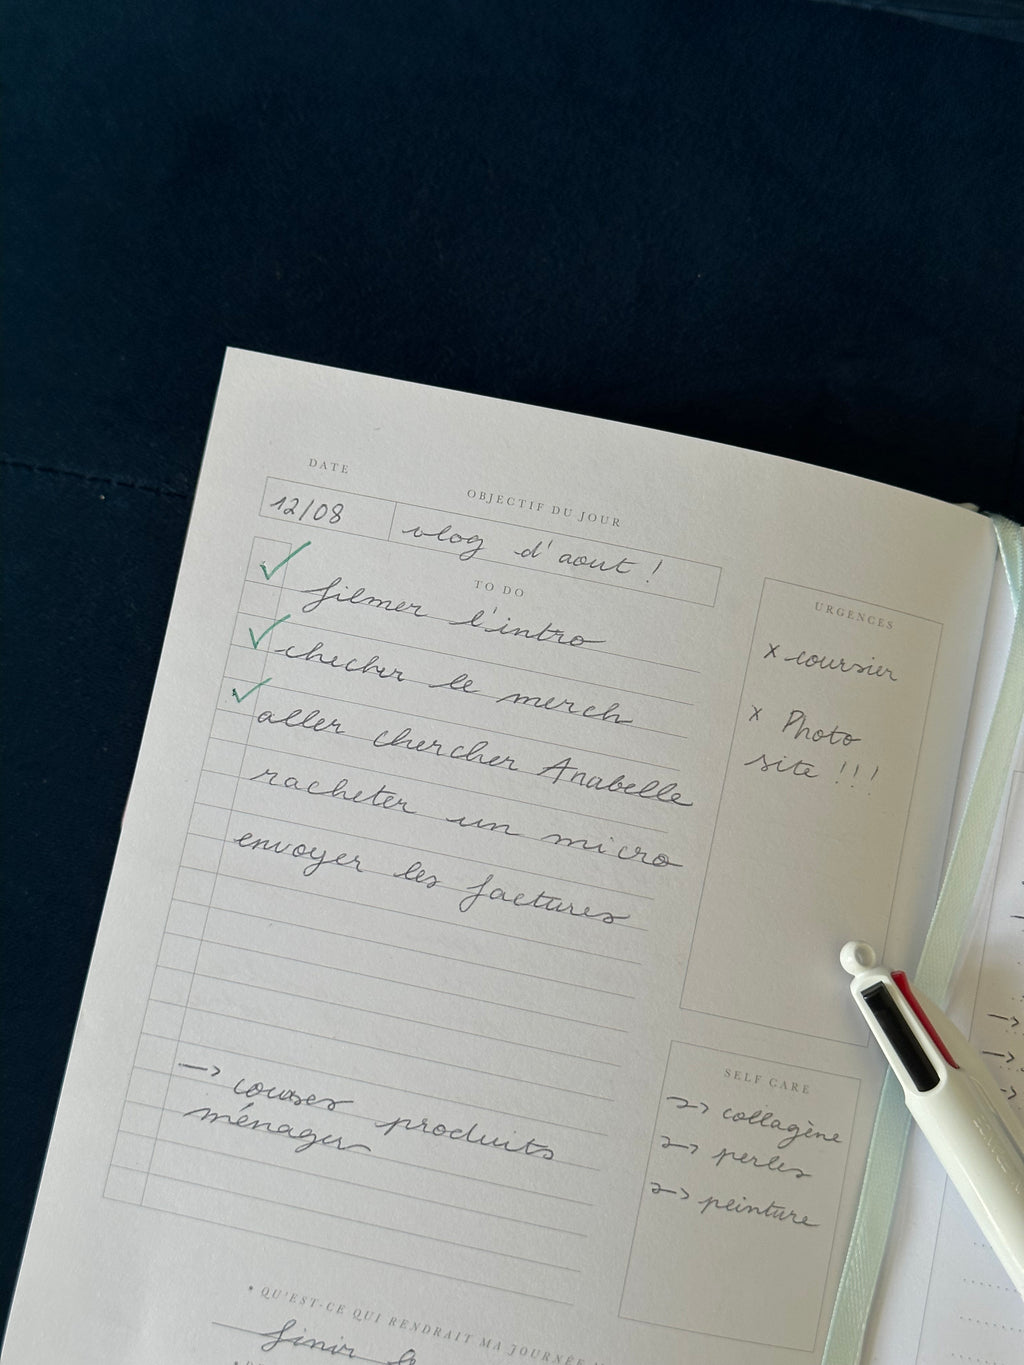 DATE
OBJECTIF DU JOUR
12/08
vlog d'aout !
TO DO
filmer l'intro
checker le merch
aller chercher Anabelle
racheter un micro
envoyer les factures
-> courses produits
ménager
URGENCES
x coursier
x Photo
site !!!
SELF CARE
->> collagène
->> perles
->> peinture
• QU'EST-CE QUI RENDRAIT MA JOURNÉE
finir